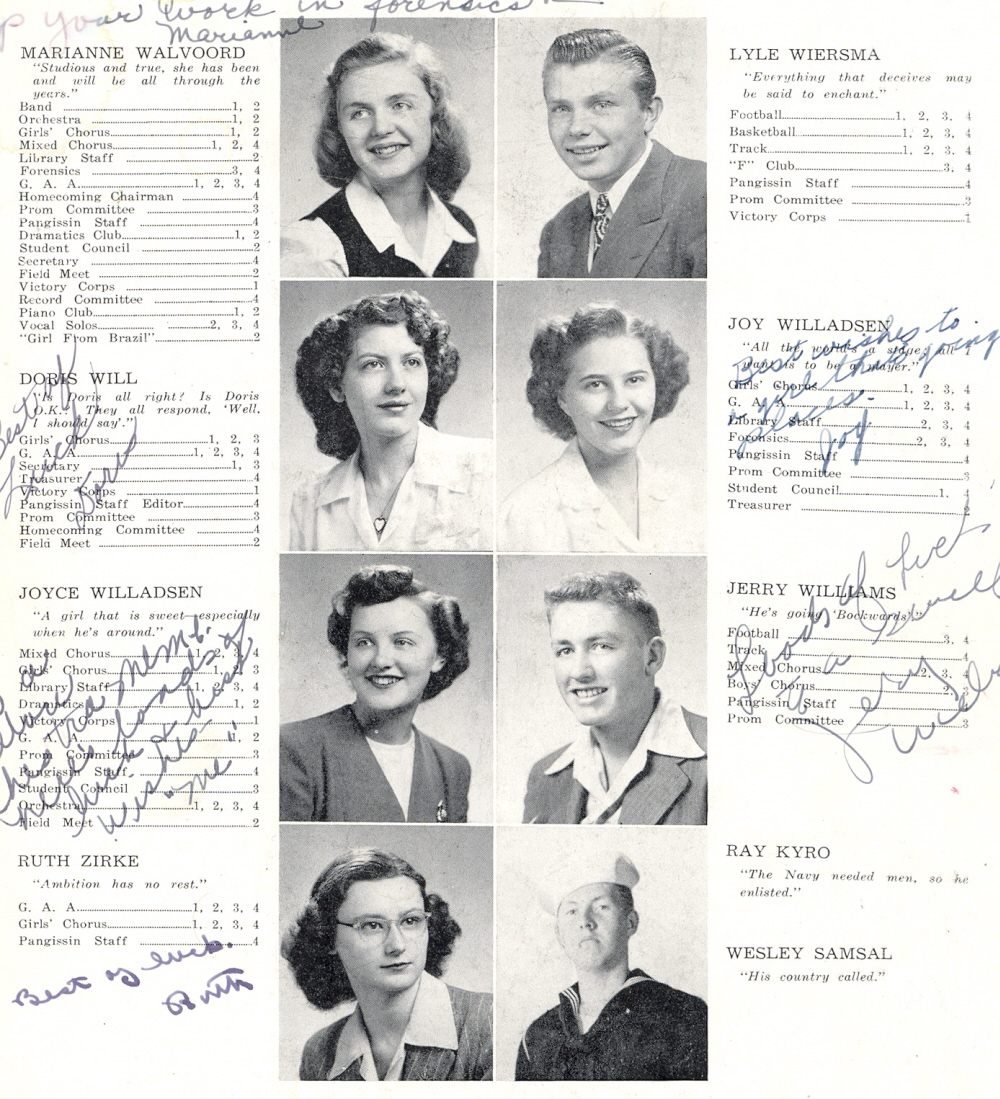 p your work in forensics
Marianne
MARIANNE WALVOORD
"Studious and true, she has been
and will be all through the
years."
Band 1, 2
Orchestra 1, 2
Girls' Chorus 1, 2
Mixed Chorus 1, 2, 4
Library Staff 2
Forensics 3, 4
G. A. A. 1, 2, 3, 4
Homecoming Chairman 4
Prom Committee 3
Pangissin Staff 4
Dramatics Club 1, 2
Student Council 2
Secretary 4
Field Meet 2
Victory Corps 1
Record Committee 4
Piano Club 1, 2
Vocal Solos 2, 3, 4
"Girl From Brazil" 2
DORIS WILL
"Is Doris all right? Is Doris
O.K.? They all respond, 'Well,
I should say'."
Girls' Chorus 1, 2, 3
G. A. A. 1, 2, 3, 4
Secretary 1, 3
Treasurer 4
Victory Corps 1
Pangissin Staff Editor 4
Prom Committee 3
Homecoming Committee 4
Field Meet 2
Best of
Luck
Doris
JOYCE WILLADSEN
"A girl that is sweet—especially
when he's around."
Mixed Chorus 1, 2, 3, 4
Girls' Chorus 1, 2, 3
Library Staff 1, 2, 3, 4
Dramatics 1, 2
Victory Corps 1
G. A. A. 1, 2, 3, 4
Prom Committee 3
Pangissin Staff 4
Student Council 3
Orchestra 1, 2, 3, 4
Field Meet 2
here's loads of
luck & best
wishes
"me"
RUTH ZIRKE
"Ambition has no rest."
G. A. A. 1, 2, 3, 4
Girls' Chorus 1, 2, 3, 4
Pangissin Staff 4
Best of luck.
Ruth
LYLE WIERSMA
"Everything that deceives may
be said to enchant."
Football 1, 2, 3, 4
Basketball 1, 2, 3, 4
Track 1, 2, 3, 4
"F" Club 3, 4
Pangissin Staff 4
Prom Committee 3
Victory Corps 1
JOY WILLADSEN
"All the world's a stage; all I
want is to be a player."
Girls' Chorus 1, 2, 3, 4
G. A. A. 1, 2, 3, 4
Library Staff 2, 3, 4
Forensics 2, 3, 4
Pangissin Staff 4
Prom Committee 3
Student Council 1, 4
Treasurer 2
Best wishes to
going
places.
Joy
JERRY WILLIAMS
"He's going 'Bockwards'."
Football 3, 4
Track 4
Mixed Chorus 2, 3, 4
Boys' Chorus 2, 3
Pangissin Staff 4
Prom Committee 3
Loads of luck
to a swell
Jerry
RAY KYRO
"The Navy needed men, so he
enlisted."
WESLEY SAMSAL
"His country called."